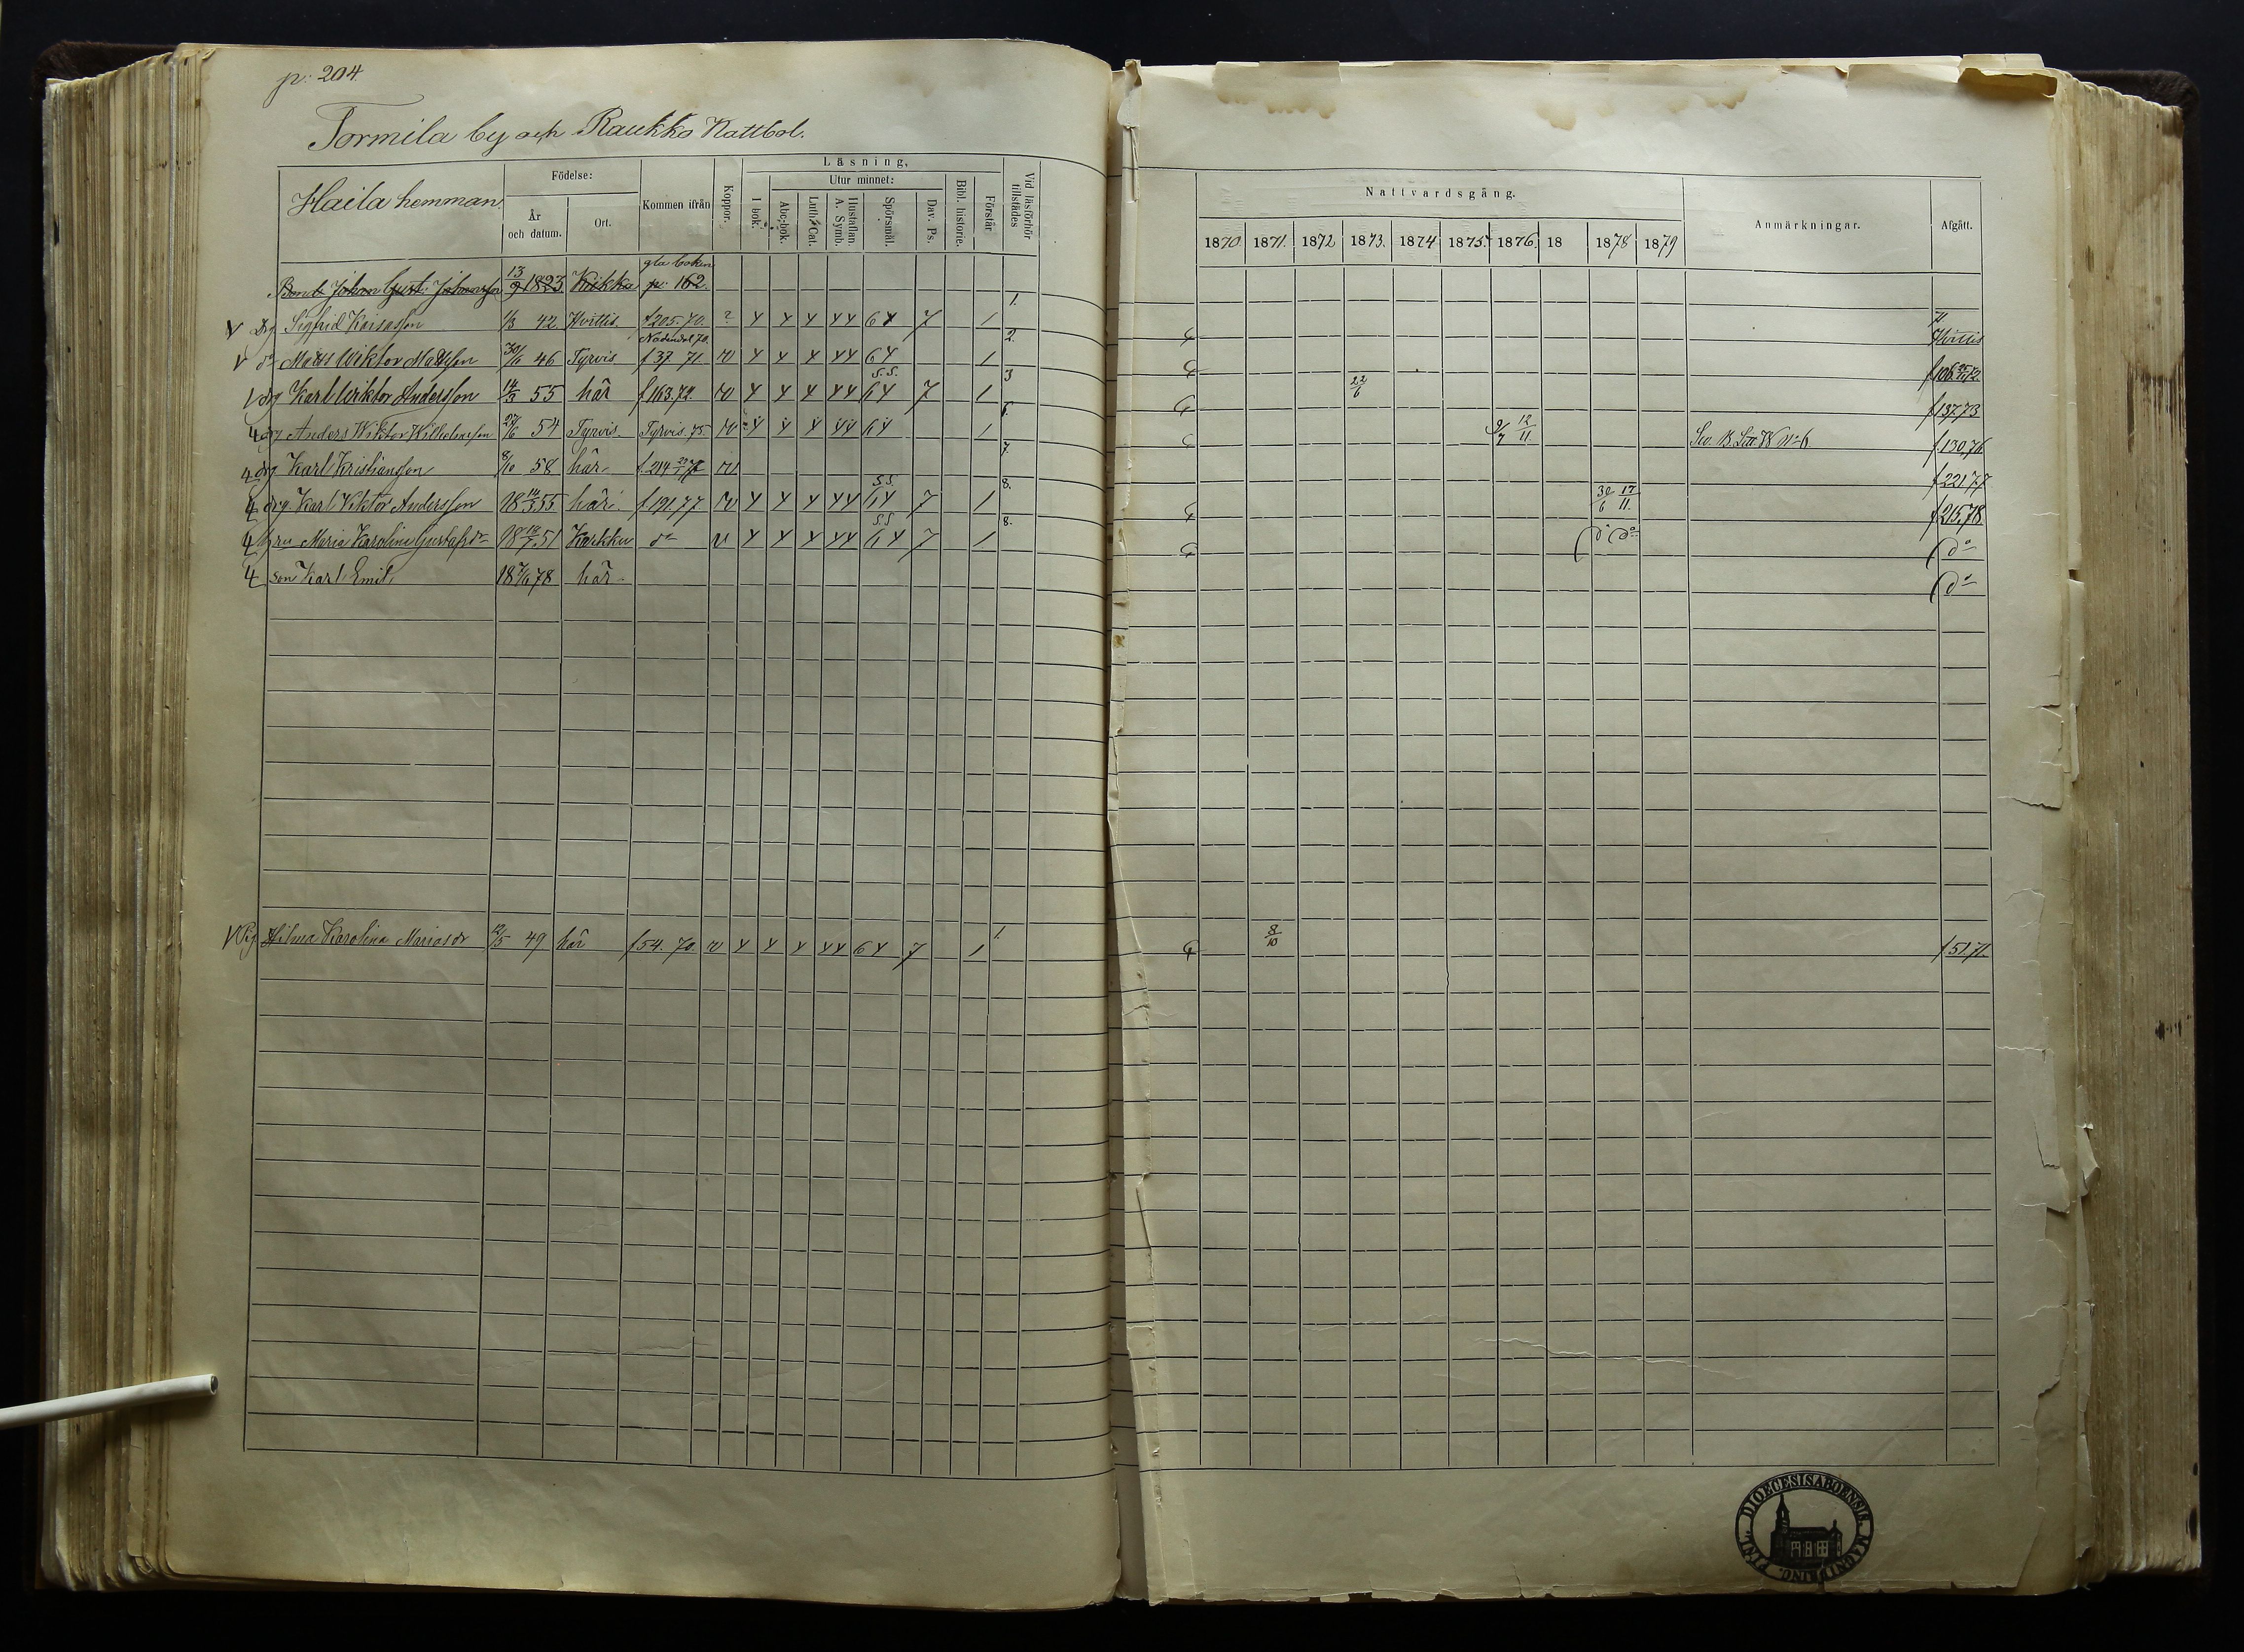 p: 204.
Tormila by och Raukko Kattbol.
Haila hemman.
Födelse:
År och datum.
Ort.
Kommen ifrån
Koppor.
Läsning,
I bok.
Utur minnet:
Abc-bok.
Luth. Cat.
Hustaflan. A. Symb.
Spörsmål.
Dav. Ps.
Bibl. historie.
Förstår
Vid läsförhör tillstädes
Nattvardsgång.
1870 1871. 1872 1873. 1874 1875. 1876. 18 1878 1879
Anmärkningar.
Afgått.
Bond. Johan Gust: Johansson 13/9 1823 Kiikka gla boken p: 162.
V Drg Sigfrid Kaisasson 1/3 42 Hvittis. f 205. 70. ? 6 7 1 1. 71 Hvittis
V do Matts Wiktor Mattsson 30/6 46 Tyrvis Nådendal 70. f 37 71 6 1 2.
V drg Karl Wiktor Andersson 14/3 55 här f 163. 72. S.S. 7 1 3 22/6 f 137.73
4 drg Anders Wiktor Wilhelmsson 27/6 54 Tyrvis Tyrvis. 75. 1 6. 9/7 12/11 f 130.76
4 drg Karl Kristiansson 8/10 58 här f. 214 7. f 221 77
4 drg. Karl Viktor Andersson 18 14/3 55 här f. 191. 77 S.S. 7 1 8. 30/6 17/11. f 215,78
4 hru Maria Karolina Gustafsdr 18 51 Karkku do S.S 7 1 8. do do do
4 son Karl Emil, 18 78 här do
V Pig Hilma Karolina Mariasdr 12/5 49 här f 54. 70. 6 7 1 1. 8/10 f 51.71.
FINL. DIOECESIS ABOENSIS. MAGNI DUC.